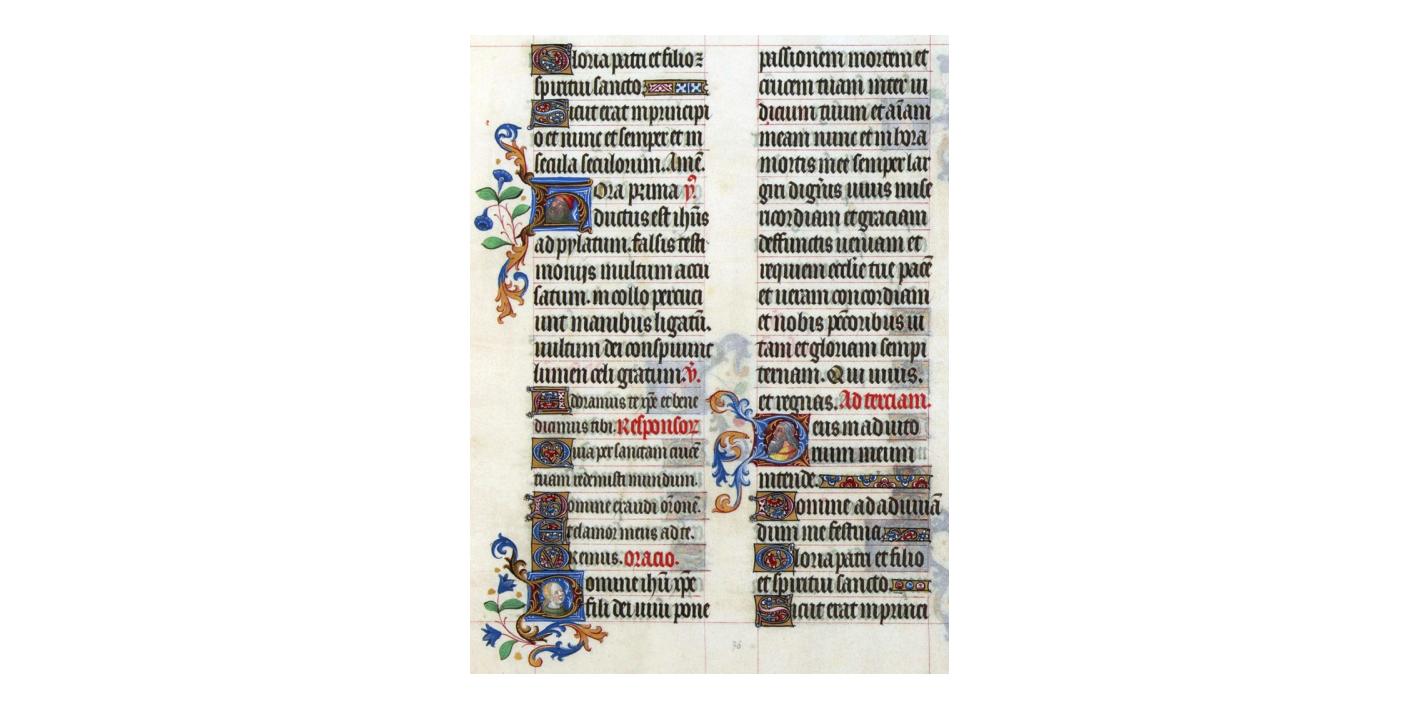 Gloria patri et filio ⁊
spiritui sancto.
Sicut erat in principi
o et nunc et semper et in
secula seculorum. Amē.
Hora prima ꝟ.
ductus est ihūs
ad pylatum. falsis testi
monijs multum accu
satum. in collo percuci
unt manibus ligatū.
uultum dei conspuunt
lumen celi gratum. ꝟ.
Adoramus te xp̄e et bene
dicimus tibi. Responsoꝝ
Quia per sanctam crucē
tuam redemisti mundum.
Domine exaudi oꝛōnē.
Et clamor meus ad te.
Oremus. oracio.
Domine ihū xp̄e
fili dei uiui pone
passionem mortem et
crucem tuam inter iu
dicium tuum et aīam
meam nunc et in hora
mortis mee semper lar
giri dignīs uiuis mise
ricordiam et graciam
deffunctis ueniam et
requiem ecclīe tue pacē
et ueram concordiam
et nobis pc̄coribus ui
tam et gloriam sempi
ternam. Qui uiuis.
et regnas. Ad terciam.
Deus in adiuto
rium meum
intende.
Domine ad adiuuā
dum me festina.
Gloria patri et filio
et spiritui sancto.
Sicut erat in princi
36